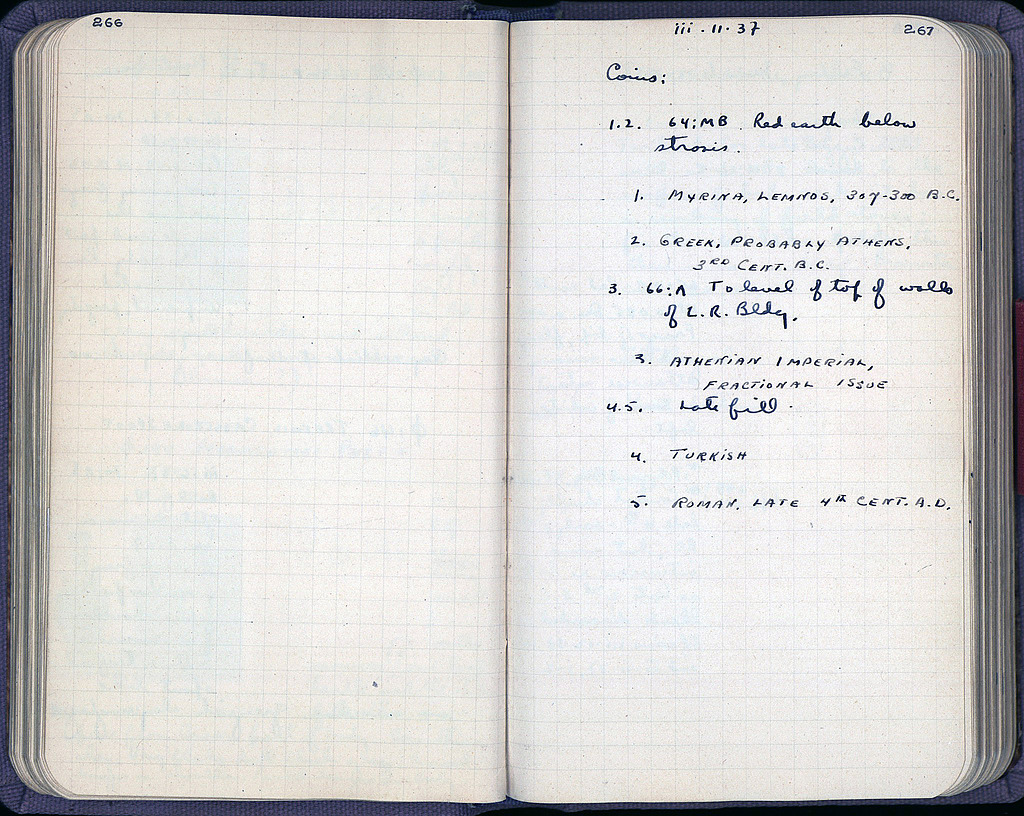 266
iii · 11 · 37
267
Coins:
1.2. 64:MB. Red earth below
strosis.
1. MYRINA, LEMNOS, 307-300 B.C.
2. GREEK, PROBABLY ATHENS,
3RD CENT. B.C.
3. 66:Λ To level of top of walls
of L.R. Bldg.
3. ATHENIAN IMPERIAL,
FRACTIONAL ISSUE
4.5. Late fill.
4. TURKISH
5. ROMAN, LATE 4TH CENT. A.D.